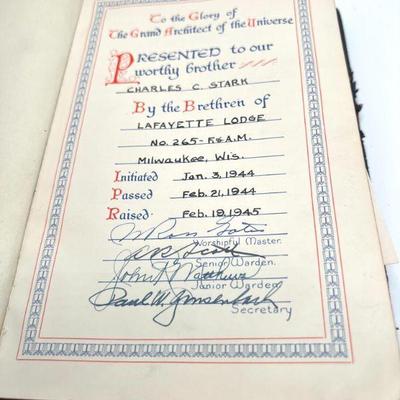 To the Glory of
The Grand Architect of the Universe
PRESENTED to our
worthy brother
CHARLES C. STARK
By the Brethren of
LAFAYETTE LODGE
No. 265-F.&A.M.
Milwaukee, Wis.
Initiated Jan. 3, 1944
Passed Feb. 21, 1944
Raised: Feb. 19, 1945
Ross
Worshipful Master.
Senior Warden.
John
Junior Warden
Paul W.
Secretary